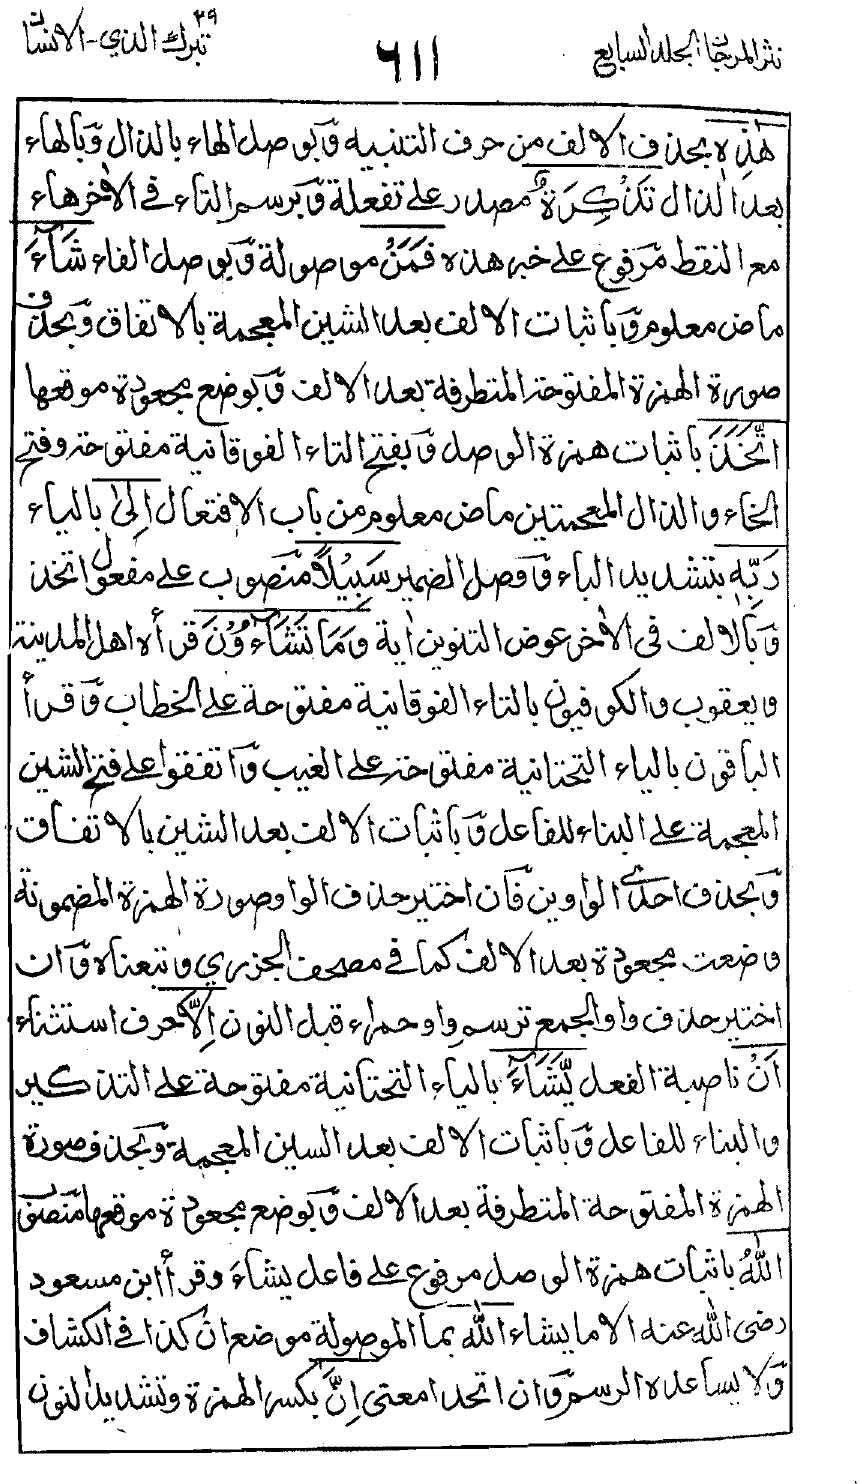 نثر المرجان الجلد السابع
٦١١
٢٩
تبرك الذي - الانسان
هٰذِهٖ بحذف الالف من حرف التنبيه وَبوصل الهاء بالذال وَبالهاء
بعد الذال تَذْكِرَةٌ مصدر على تفعلة وَبرسم التاء في الاٰخر هاء
مع النقط مرفوع على خبر هذه فَمَنْ موصولة وَبوصل الفاء شَآءَ
ماض معلوم وَباثبات الالف بعد الشين المعجمة بالاتفاق وَبحذف
صورة الهمزة المفتوحة المتطرفة بعد الالف وَبوضع مجعودة موقعها
اتَّخَذَ باثبات همزة الوصل وَبفتح التاء الفوقانية مفتوحة وفتح
الخاء والذال المعجمتين ماض معلوم من باب الافتعال اِلىٰ بالياء
رَبِّهٖ بتشديد الباء وَوصل الضمير سَبِيْلًا منصوب على مفعول اتخذ
وَبالالف في الاٰخر عوض التنوين اٰية وَمَا تَشَآءُوْنَ قرأه اهل المدينة
ويعقوب والكوفيون بالتاء الفوقانية مفتوحة على الخطاب وَقرأ
الباقون بالياء التحتانية مفتوحة على الغيب وَاتفقوا على فتح الشين
المعجمة على البناء للفاعل وَباثبات الالف بعد الشين بالاتفاق
وَبحذف احدى الواوين فَان اختير حذف الواو صورة الهمزة المضمومة
وضعت مجعودة بعد الالف كما في مصحف الجزري وتبعناه وَان
اختير حذف واو الجمع ترسم واو حمراء قبل النون اِلَّا حرف استثناء
اَنْ ناصبة الفعل يَّشَآءَ بالياء التحتانية مفتوحة على التذكير
والبناء للفاعل وَباثبات الالف بعد السين المعجمة وَبحذف صورة
الهمزة المفتوحة المتطرفة بعد الالف وَبوضع مجعودة موقعها منصوب
اللّٰهُ باثبات همزة الوصل مرفوع على فاعل يشاءَ وقرأ ابن مسعود
رضى اللّٰه عنه الا ما يشاء اللّٰه بما الموصولة موضع ان كذا في الكشاف
وَلا يساعده الرسم وَان اتحدا معنى اِنَّ بكسر الهمزة وتشديد النون